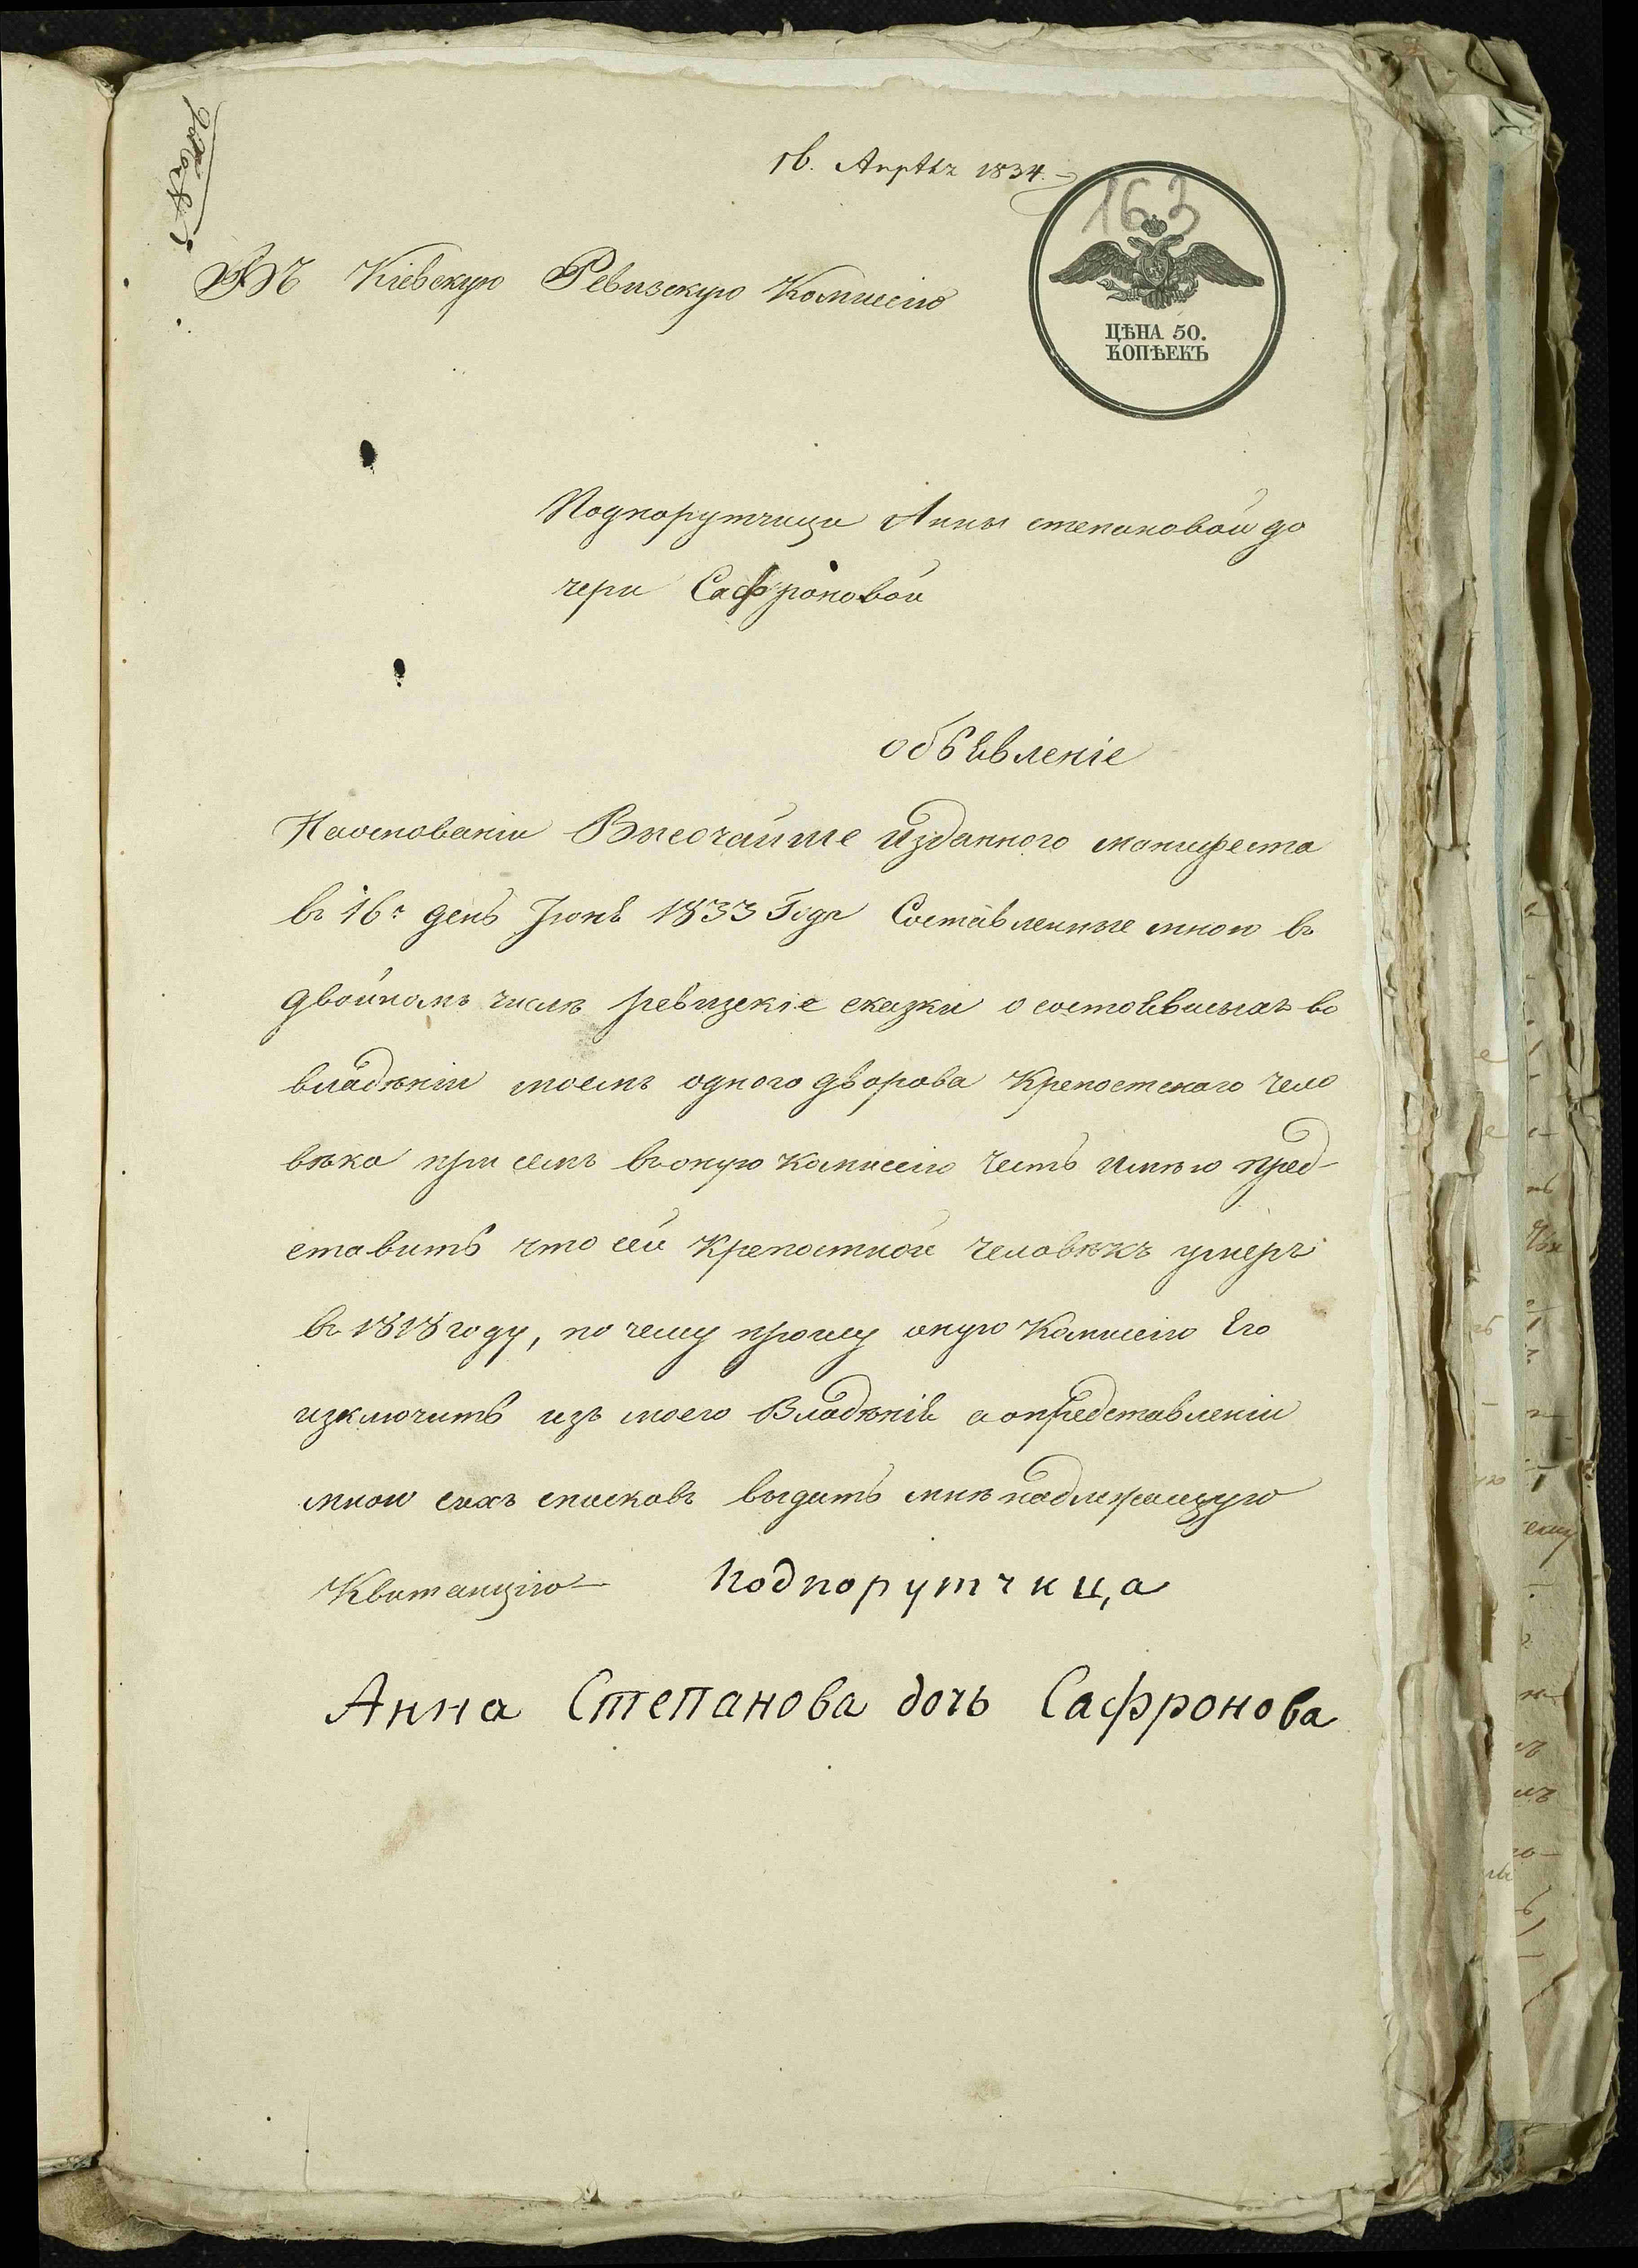 16. Апрѣля 1834.
163
Въ Кіевскую Ревизскую Комисію
ЦѢНА 50.
КОПѢЕКЪ
Подпорутчици Анны степановой до
чери Сафроновой
объявленіе
Наоснованіи Высочайше изданного манифеста
въ 16й день Іюня 1833 Года Составленные мною въ
двойномъ числѣ ревизскіе сказки о состоявшихъ во
владѣніи моемъ одного дворова Крепостнаго чело
вѣка при семъ въ оную комисію честь имѣю пред-
ставить что сей Крепостной человѣкъ умеръ
въ 1818 году, по чему прошу оную Комисію Его
изключить изъ моего Владѣнія а о представленіи
мною сихъ списковъ выдать мнѣ надлежащую
Квитанцію Подпорутчица
Анна Степанова дочь Сафронова